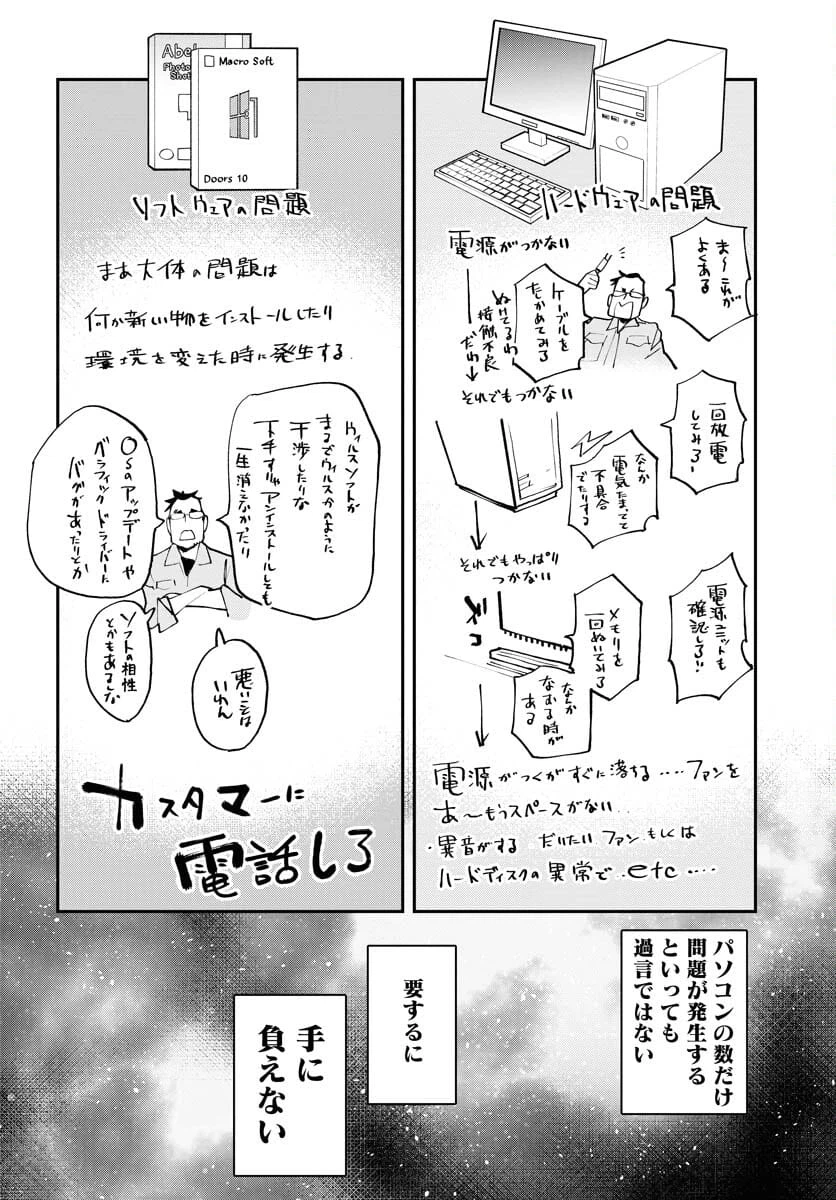 ハードウェアの問題
電源がつかない
ま〜これが
よくある
ケーブルを
たしかめてみろ
ぬけてるわ
接触不良
だわ
それでもつかない
一回放電
してみろ!
なんか
電気たまってて
不具合
でたりする
それでもやっぱり
つかない
電源ユニットも
確認しろ!!
メモリを
一回ぬいてみろ
なんか
なおる時が
ある
電源がつくがすぐに落ちる‥‥ファンを
あ〜もうスペースがない‥
・異音がする だいたいファンもしくは
ハードディスクの異常で‥etc‥‥
Abel
Photo
Shot
Macro Soft
Doors 10
ソフトウェアの問題
まあ大体の問題は
何か新しい物をインストールしたり
環境を変えた時に発生する
ウィルスソフトが
まるでウィルスかのように
干渉したりな
下手すりゃアンインストールしても
一生消えなかったり
OSのアップデートや
グラフィックドライバーに
バグがあったりとか
ソフトの相性
とかもあるしな
悪いことは
いわん
カスタマーに
電話しろ
パソコンの数だけ
問題が発生する
といっても
過言ではない
要するに
手に
負えない